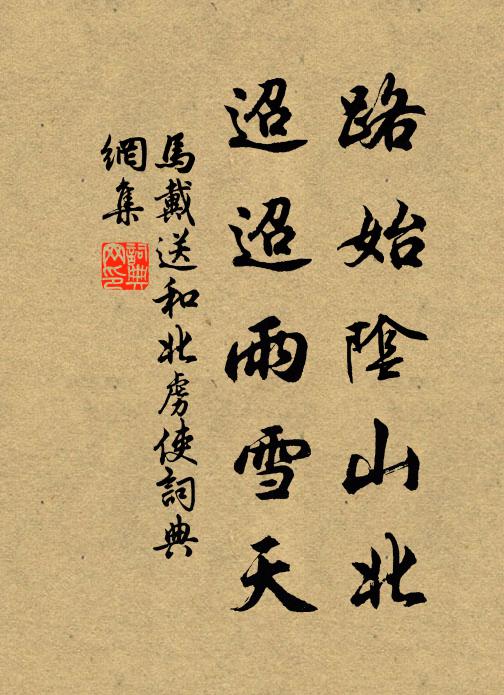 路始陰山北
迢迢雨雪天
馬戴送和北虜使詞典
網集
詞典
网印